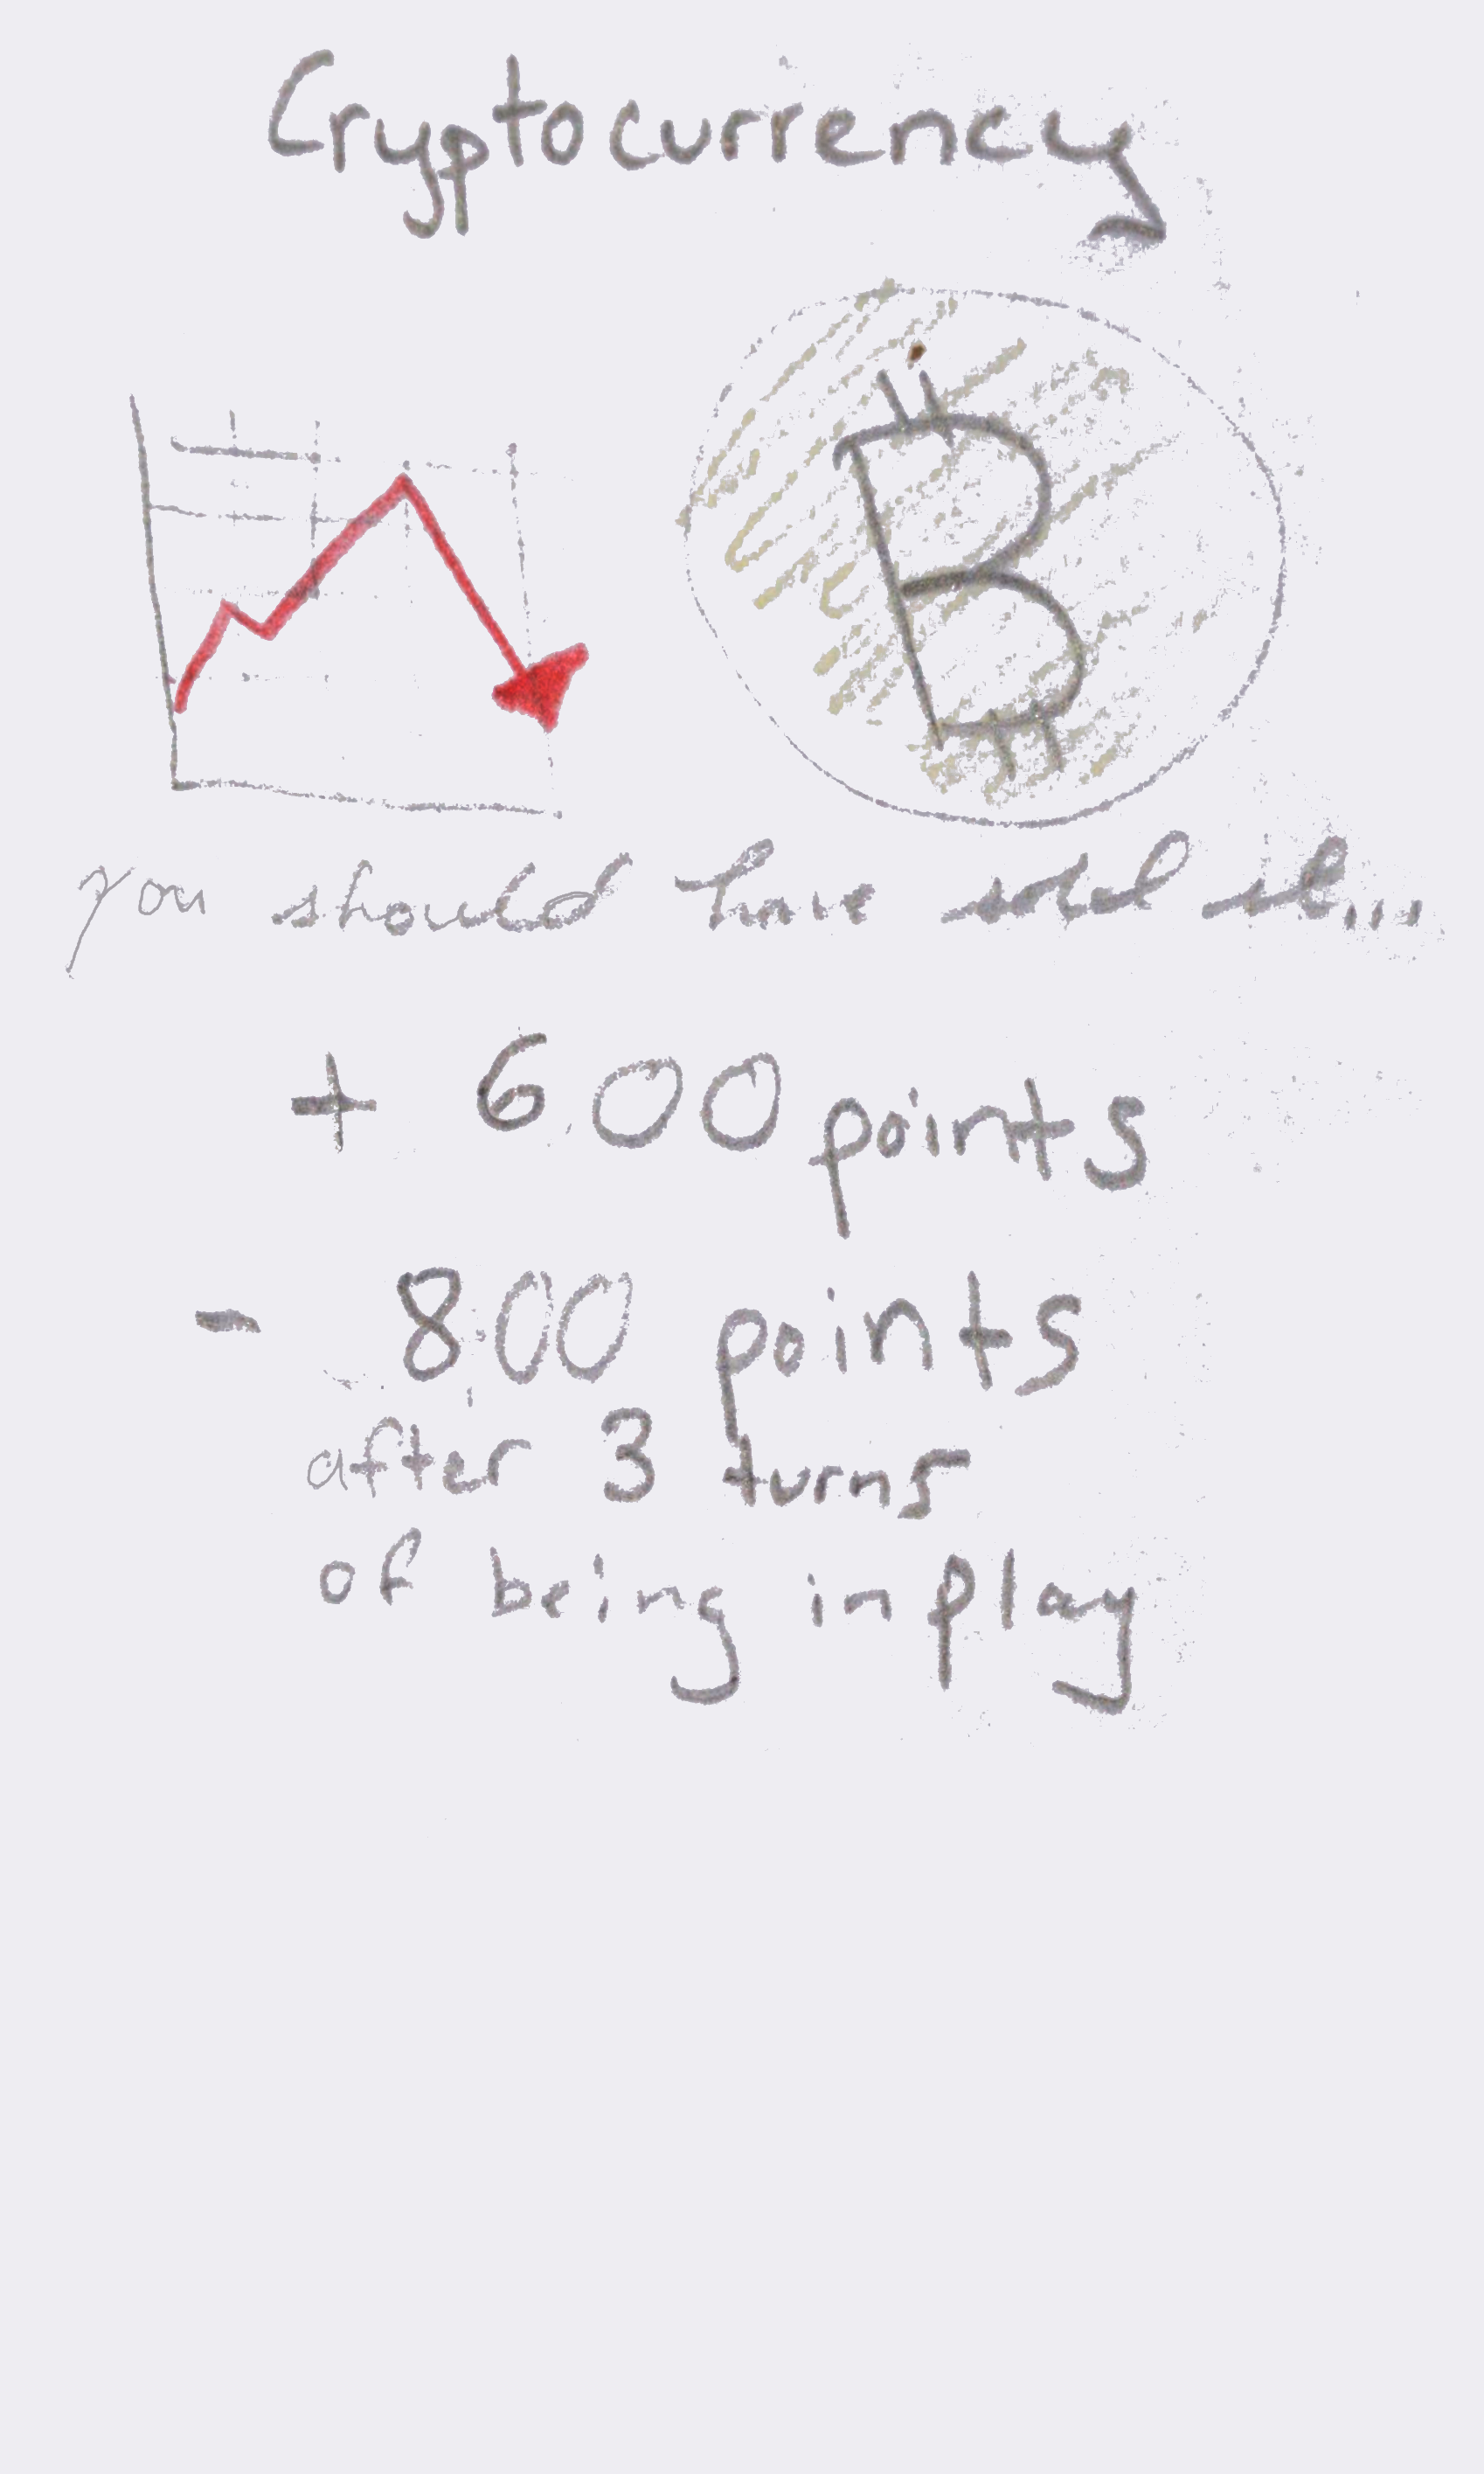 Cryptocurrency
you should have sold it...
+ 600 points
- 800 points
after 3 turns
of being in play